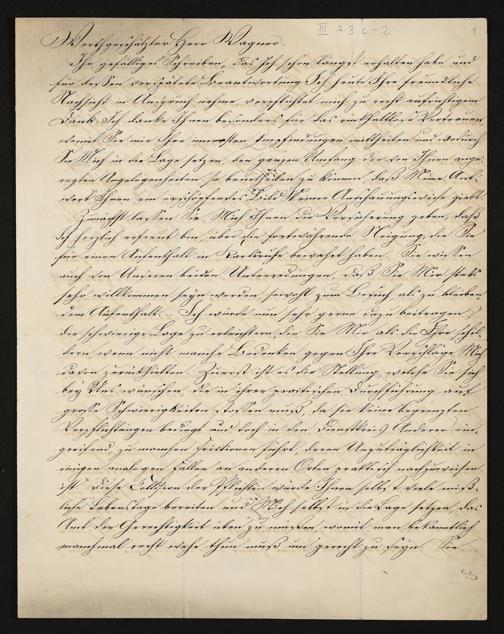 III A 3 c-2
1
Werthgeschätzter Herr Wagner.
Ihr gefälliges Schreiben, das ich schon längst erhalten habe und
für dessen verspätete Beantwortung Ich heute Ihre freundliche
Nachsicht in Anspruch nehme verpflichtet mich zu recht aufrichtigem
Dank. Ich danke Ihnen besonders für das rückhaltlose Vertrauen
womit Sie mir Ihre innersten Empfindungen mittheilen und wodurch
Sie Mich in die Lage setzen, den ganzen Umfang der von Ihnen ange
regten Angelegenheiten so beurtheilen zu können, daß Meine Ant-
wort Ihnen ein erschöpfendes Bild Meiner Anschauungsweise giebt.
Zunächst lassen Sie Mich Ihnen die Versicherung geben, daß
Ich herzlich erfreut bin, über die fortwährende Neigung, die Sie
für einen Aufenthalt in Karlsruhe bewahrt haben. Sie wissen
auch von Unseren beiden Unterredungen, daß Sie Mir stets
sehr willkommen seyn werden, sowohl zum Besuch als zu bleiben
dem Aufenthalt. – Ich würde nun sehr gerne dazu beitragen,
die schwierige Lage zu erleichtern, die Sie Mir als die Ihre schil
dern, wenn nicht manche Bedenken gegen Ihre Vorschläge Mich
davon zurückhielten. Zuerst ist es die Stellung, welche Sie sich
bey Uns wünschen, die in ihrer praktischen Durchführung auf
große Schwierigkeiten stoßen muß, da sie keine begrenzten
Verpflichtungen bedingt und doch in den Dienstkreis Anderer ein
greifend zu manchen Frictionen führt, deren Unzuträglichkeit in
einigen analogen Fällen an anderen Orten praktisch nachzuweisen
ist. Diese Collision der Pflichten würde Ihnen selbst viele miß-
liche Lebenstage bereiten und Mich selbst in die Lage setzen, das
Amt der Gerechtigkeit üben zu müssen, womit man bekanntlich
manchmal recht wehe thun muß um gerecht zu seyn. Sie